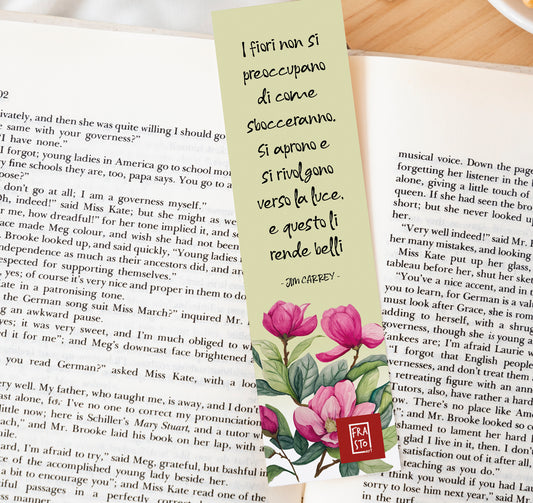 02
ivately, and then she was quite willing I should go
same with your governess?"
"I have none."
forgot; young ladies in America go to school more
y fine schools they are, too, papa says. You go to a
pose?"
don't go at all; I am a governess myself."
Oh, indeed!" said Miss Kate; but she might as we
r me, how dreadful!" for her tone implied it, and so
ace made Meg colour, and wish she had not been
Brooke looked up, and said quickly, "Young ladies
ndependence as much as their ancestors did, and an
espected for supporting themselves."
yes; of course it's very nice and proper in them to do
Kate in a patronising tone.
the German song suit Miss March?" inquired Mr.
ng an awkward pause.
yes; it was very sweet, and I'm much obliged to wh
d it for me"; and Meg's downcast face brightened
you read German?" asked Miss Kate, with a loo
ery well. My father, who taught me, is away, and I don't
ast alone, for I've no one to correct my pronunciation
little now; here is Schiller's Mary Stuart, and a tutor w
and Mr. Brooke laid his book on her lap, with
ard, I'm afraid to try," said Meg, grateful, but bashful in
ce of the accomplished young lady beside her.
a bit to encourage you"; and Miss Kate read one of the
tiful passages in a perfectly correct
I fiori non si
preoccupano
di come
sbocceranno.
Si aprono e
si rivolgono
verso la luce,
e questo li
rende belli
- JIM CARREY -
FRA
STO
art
musical voice. Down the page
forgetting her listener in the
alone, giving a little touch of
queen. If she had seen the bro
short; but she never looked up
her.
"Very well indeed!" said Mr. B
her many mistakes, and looking
Miss Kate put up her glass,
tableau before her, shut her sket
"You've a nice accent, and in t
you to learn, for German is a val
must look after Grace, she is rom
dding to herself, with a shrug
overness, though she is young a
ankees are; I'm afraid Laurie w
"I forgot that English people
vernesses, and don't treat them
retreating figure with an anno
Tutors, also, have rather a hard
now. There's no place like Amer
and Mr. Brooke looked so co
hamed to lament her hard l
glad I live in it, then. I don't
satisfaction out of it after all,
teaching as you do."
think you would if you had Lau
sorry to lose him next year," said